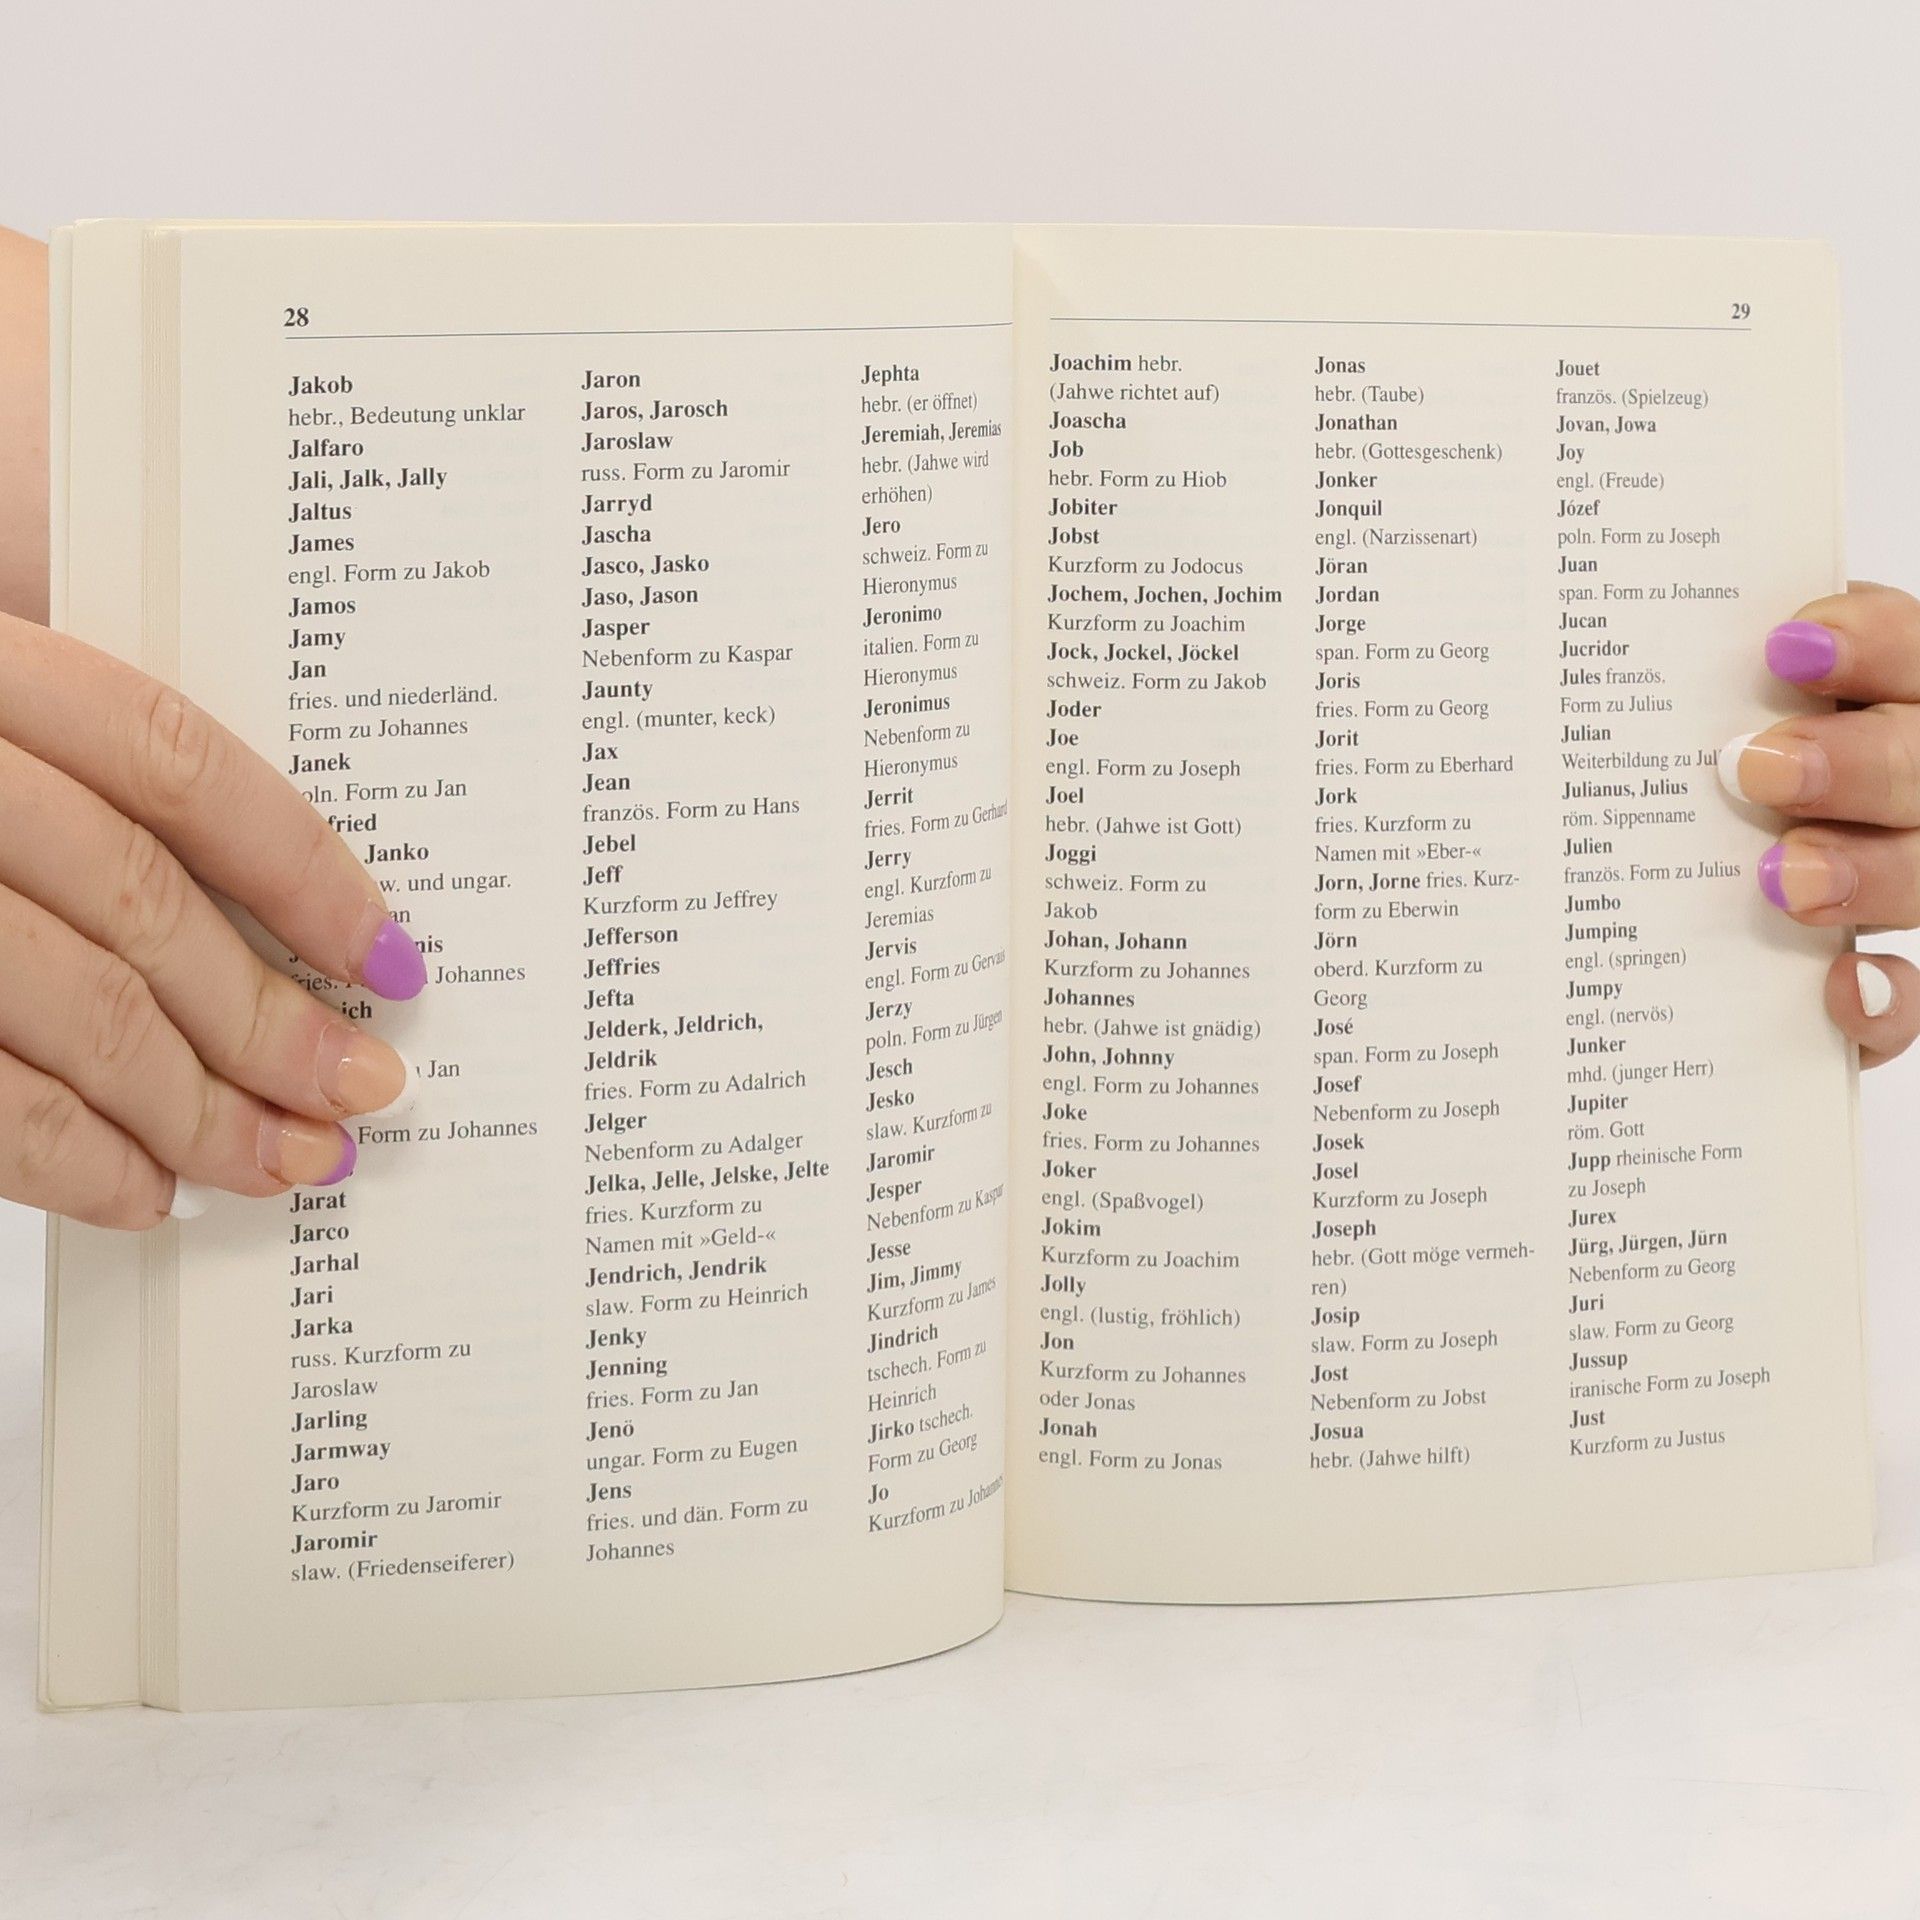 28
Jakob
hebr., Bedeutung unklar
Jalfaro
Jali, Jalk, Jally
Jaltus
James
engl. Form zu Jakob
Jamos
Jamy
Jan
fries. und niederländ.
Form zu Johannes
Janek
Form zu Jan
Janko
und ungar.
Johannes
Jan
Form zu Johannes
Jarat
Jarco
Jarhal
Jari
Jarka
russ. Kurzform zu
Jaroslaw
Jarling
Jarmway
Jaro
Kurzform zu Jaromir
Jaromir
slaw. (Friedenseiferer)
Jaron
Jaros, Jarosch
Jaroslaw
russ. Form zu Jaromir
Jarryd
Jascha
Jasco, Jasko
Jaso, Jason
Jasper
Nebenform zu Kaspar
Jaunty
engl. (munter, keck)
Jax
Jean
französ. Form zu Hans
Jebel
Jeff
Kurzform zu Jeffrey
Jefferson
Jeffries
Jefta
Jelderk, Jeldrich,
Jeldrik
fries. Form zu Adalrich
Jelger
Nebenform zu Adalger
Jelka, Jelle, Jelske, Jelte
fries. Kurzform zu
Namen mit »Geld-«
Jendrich, Jendrik
slaw. Form zu Heinrich
Jenky
Jenning
fries. Form zu Jan
Jenö
ungar. Form zu Eugen
Jens
fries. und dän. Form zu
Johannes
Jephta
hebr. (er öffnet)
Jeremiah, Jeremias
hebr. (Jahwe wird
erhöhen)
Jero
schweiz. Form zu
Hieronymus
Jeronimo
italien. Form zu
Hieronymus
Jeronimus
Nebenform zu
Hieronymus
Jerrit
fries. Form zu Gerhard
Jerry
engl. Kurzform zu
Jeremias
Jervis
engl. Form zu Gervais
Jerzy
poln. Form zu Jürgen
Jesch
Jesko
slaw. Kurzform zu
Jaromir
Jesper
Nebenform zu Kaspar
Jesse
Jim, Jimmy
Kurzform zu James
Jindrich
tschech. Form zu
Heinrich
Jirko tschech.
Form zu Georg
Jo
Kurzform zu Johannes
29
Joachim hebr.
(Jahwe richtet auf)
Joascha
Job
hebr. Form zu Hiob
Jobiter
Jobst
Kurzform zu Jodocus
Jochem, Jochen, Jochim
Kurzform zu Joachim
Jock, Jockel, Jöckel
schweiz. Form zu Jakob
Joder
Joe
engl. Form zu Joseph
Joel
hebr. (Jahwe ist Gott)
Joggi
schweiz. Form zu
Jakob
Johan, Johann
Kurzform zu Johannes
Johannes
hebr. (Jahwe ist gnädig)
John, Johnny
engl. Form zu Johannes
Joke
fries. Form zu Johannes
Joker
engl. (Spaßvogel)
Jokim
Kurzform zu Joachim
Jolly
engl. (lustig, fröhlich)
Jon
Kurzform zu Johannes
oder Jonas
Jonah
engl. Form zu Jonas
Jonas
hebr. (Taube)
Jonathan
hebr. (Gottesgeschenk)
Jonker
Jonquil
engl. (Narzissenart)
Jöran
Jordan
Jorge
span. Form zu Georg
Joris
fries. Form zu Georg
Jorit
fries. Form zu Eberhard
Jork
fries. Kurzform zu
Namen mit »Eber-«
Jorn, Jorne fries. Kurz-
form zu Eberwin
Jörn
oberd. Kurzform zu
Georg
José
span. Form zu Joseph
Josef
Nebenform zu Joseph
Josek
Josel
Kurzform zu Joseph
Joseph
hebr. (Gott möge vermeh-
ren)
Josip
slaw. Form zu Joseph
Jost
Nebenform zu Jobst
Josua
hebr. (Jahwe hilft)
Jouet
französ. (Spielzeug)
Jovan, Jowa
Joy
engl. (Freude)
Józef
poln. Form zu Joseph
Juan
span. Form zu Johannes
Jucan
Jucridor
Jules französ.
Form zu Julius
Julian
Weiterbildung zu
Julianus, Julius
röm. Sippenname
Julien
französ. Form zu Julius
Jumbo
Jumping
engl. (springen)
Jumpy
engl. (nervös)
Junker
mhd. (junger Herr)
Jupiter
röm. Gott
Jupp rheinische Form
zu Joseph
Jurex
Jürg, Jürgen, Jürn
Nebenform zu Georg
Juri
slaw. Form zu Georg
Jussup
iranische Form zu Joseph
Just
Kurzform zu Justus